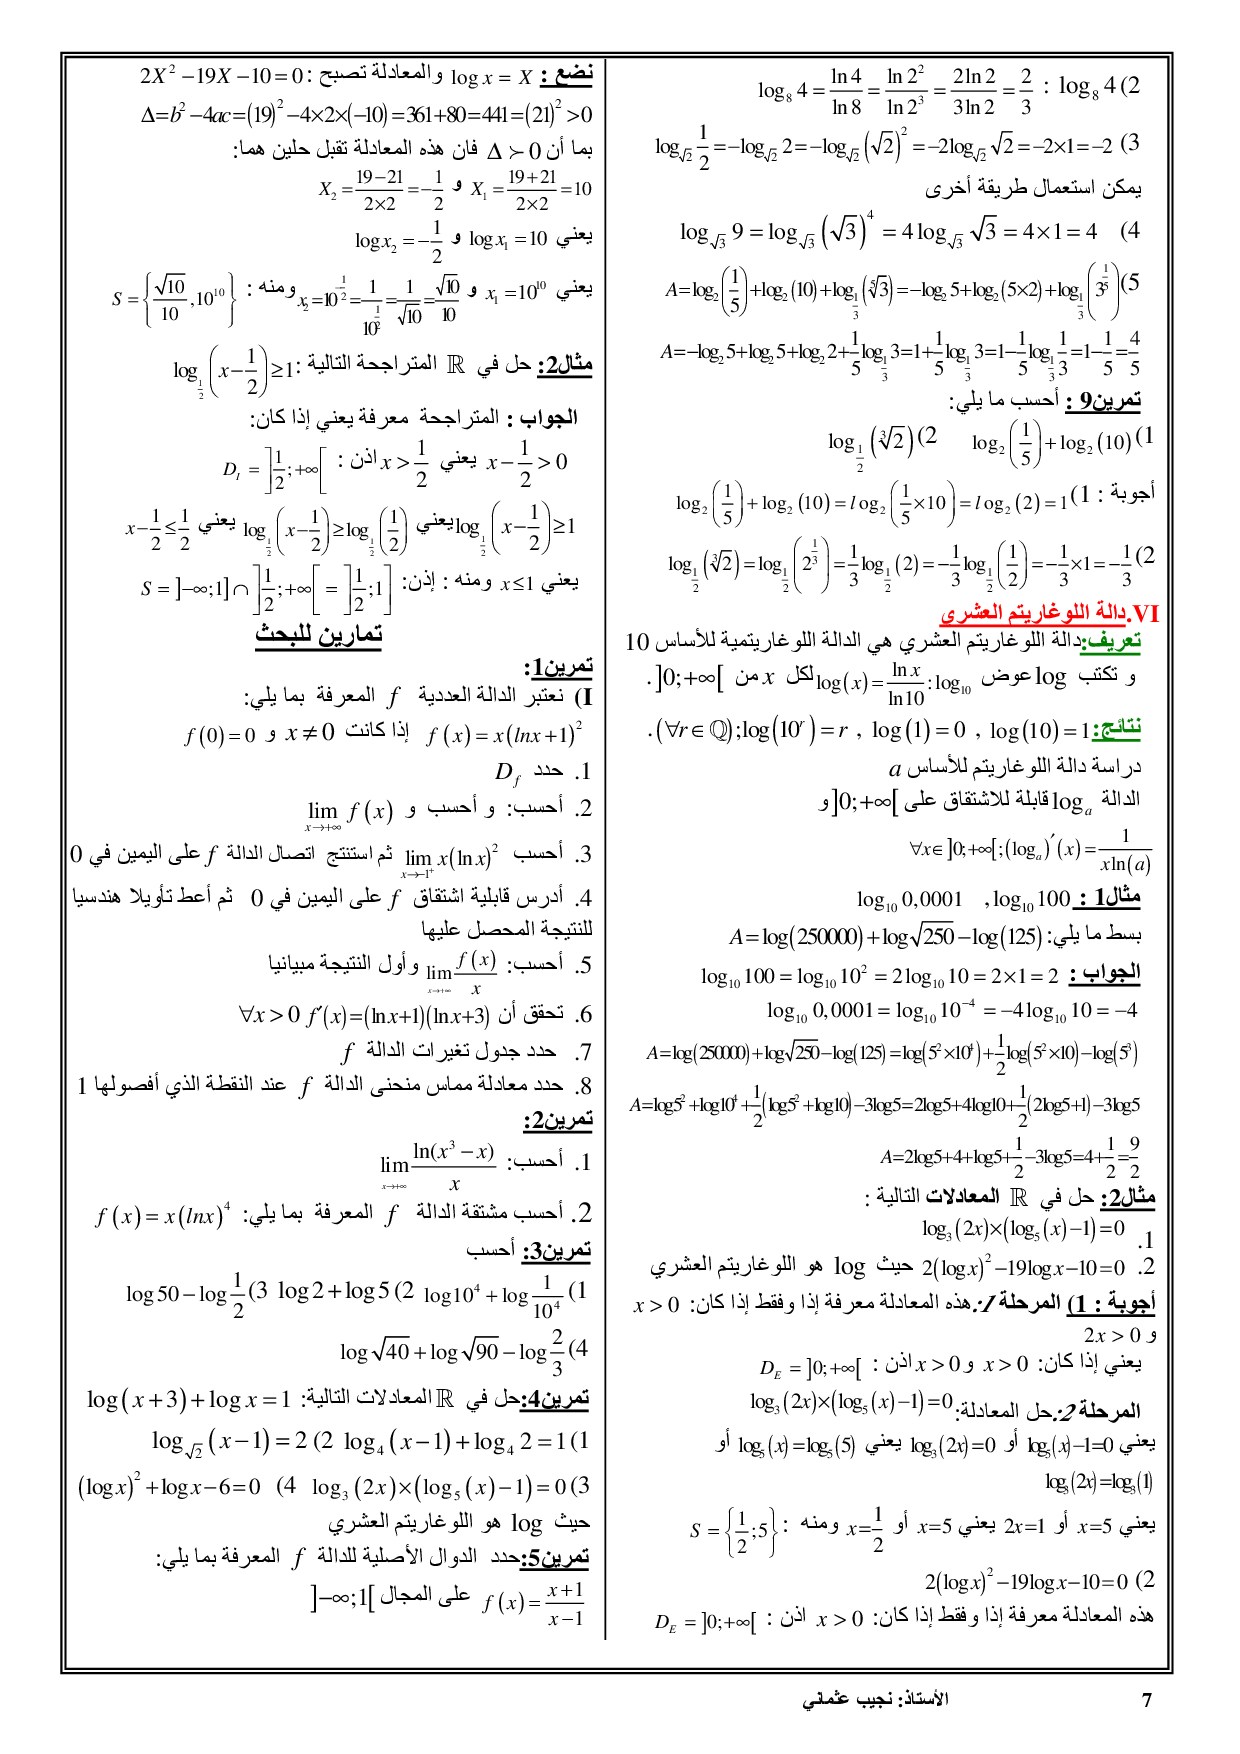 2) log₈ 4 : log₈ 4 = ln 4 / ln 8 = ln 2² / ln 2³ = 2 ln 2 / 3 ln 2 = 2/3
3) log_√2 1/2 = −log_√2 2 = −log_√2 (√2)² = −2log_√2 √2 = −2×1 = −2
يمكن استعمال طريقة أخرى
4) log_√3 9 = log_√3 (√3)⁴ = 4 log_√3 √3 = 4×1 = 4
5) A = log₂(1/5) + log₂(10) + log_{1/3}(⁵√3) = −log₂ 5 + log₂(5×2) + log_{1/3}(3^{1/5})
A = −log₂ 5 + log₂ 5 + log₂ 2 + 1/5 log_{1/3} 3 = 1 + 1/5 log_{1/3} 3 = 1 − 1/5 log_{1/3} 1/3 = 1 − 1/5 = 4/5
تمرين9 : أحسب ما يلي:
1) log₂(1/5) + log₂(10) 2) log_{1/2}(³√2)
أجوبة : 1) log₂(1/5) + log₂(10) = l og₂(1/5 × 10) = l og₂(2) = 1
2) log_{1/2}(³√2) = log_{1/2}(2^{1/3}) = 1/3 log_{1/2}(2) = −1/3 log_{1/2}(1/2) = −1/3 × 1 = −1/3
VI. دالة اللوغاريتم العشري
تعريف: دالة اللوغاريتم العشري هي الدالة اللوغاريتمية للأساس 10
و تكتب log عوض log₁₀ : log(x) = ln x / ln 10 لكل x من ]0;+∞[ .
نتائج: log(10) = 1 , log(1) = 0 , (∀r ∈ ℚ);log(10^r) = r .
دراسة دالة اللوغاريتم للأساس a
الدالة log_a قابلة للاشتقاق على ]0;+∞[ و
∀x ∈ ]0;+∞[ ; (log_a)′(x) = 1 / x ln(a)
مثال1 : log₁₀ 100 , log₁₀ 0,0001
بسط ما يلي: A = log(250000) + log √250 − log(125)
الجواب : log₁₀ 100 = log₁₀ 10² = 2 log₁₀ 10 = 2×1 = 2
log₁₀ 0,0001 = log₁₀ 10⁻⁴ = −4 log₁₀ 10 = −4
A = log(250000) + log √250 − log(125) = log(5²×10⁴) + 1/2 log(5²×10) − log(5³)
A = log5² + log10⁴ + 1/2(log5² + log10) − 3log5 = 2log5 + 4log10 + 1/2(2log5 + 1) − 3log5
A = 2log5 + 4 + log5 + 1/2 − 3log5 = 4 + 1/2 = 9/2
مثال2: حل في ℝ المعادلات التالية :
1. log₃(2x)×(log₅(x) − 1) = 0
2. 2(log x)² − 19 log x − 10 = 0 حيث log هو اللوغاريتم العشري
أجوبة : 1) المرحلة 1: هذه المعادلة معرفة إذا وفقط إذا كان: x > 0
و 2x > 0
يعني إذا كان: x > 0 و x > 0 اذن : D_E = ]0;+∞[
المرحلة 2: حل المعادلة: log₃(2x)×(log₅(x) − 1) = 0
يعني log₅(x) − 1 = 0 أو log₃(2x) = 0 يعني log₅(x) = log₅(5) أو
log₃(2x) = log₃(1)
يعني x = 5 أو 2x = 1 يعني x = 5 أو x = 1/2 ومنه : S = {1/2 ; 5}
2) 2(log x)² − 19 log x − 10 = 0
هذه المعادلة معرفة إذا وفقط إذا كان: x > 0 اذن : D_E = ]0;+∞[
نضع : log x = X والمعادلة تصبح : 2X² − 19X − 10 = 0
Δ = b² − 4ac = (19)² − 4×2×(−10) = 361 + 80 = 441 = (21)² > 0
بما أن Δ ≻ 0 فان هذه المعادلة تقبل حلين هما:
X₁ = (19 + 21) / (2×2) = 10 و X₂ = (19 − 21) / (2×2) = −1/2
يعني log x₁ = 10 و log x₂ = −1/2
يعني x₁ = 10¹⁰ و x₂ = 10^{−1/2} = 1/10^{1/2} = 1/√10 = √10/10 ومنه : S = {√10/10 , 10¹⁰}
مثال2: حل في ℝ المتراجحة التالية : log_{1/2}(x − 1/2) ≥ 1
الجواب : المتراجحة معرفة يعني إذا كان:
x − 1/2 > 0 يعني x > 1/2 اذن : D_I = ]1/2 ; +∞[
log_{1/2}(x − 1/2) ≥ 1 يعني log_{1/2}(x − 1/2) ≥ log_{1/2}(1/2) يعني x − 1/2 ≤ 1/2
يعني x ≤ 1 ومنه : إذن: S = ]−∞;1] ∩ ]1/2 ; +∞[ = ]1/2 ; 1]
تمارين للبحث
تمرين1:
I) نعتبر الدالة العددية f المعرفة بما يلي:
f(x) = x(lnx + 1)² إذا كانت x ≠ 0 و f(0) = 0
1. حدد D_f
2. أحسب: و أحسب و lim_{x→+∞} f(x)
3. أحسب lim_{x→−1⁺} x(ln x)² ثم استنتج اتصال الدالة f على اليمين في 0
4. أدرس قابلية اشتقاق f على اليمين في 0 ثم أعط تأويلا هندسيا
للنتيجة المحصل عليها
5. أحسب: lim_{x→+∞} f(x)/x وأول النتيجة مبيانيا
6. تحقق أن ∀x > 0 f′(x) = (lnx+1)(lnx+3)
7. حدد جدول تغيرات الدالة f
8. حدد معادلة مماس منحنى الدالة f عند النقطة الذي أفصولها 1
تمرين2:
1. أحسب: lim_{x→+∞} ln(x³ − x)/x
2. أحسب مشتقة الدالة f المعرفة بما يلي: f(x) = x(lnx)⁴
تمرين3: أحسب
1) log10⁴ + log 1/10⁴ 2) log 2 + log 5 3) log 50 − log 1/2
4) log √40 + log √90 − log 2/3
تمرين4: حل في ℝ المعادلات التالية: log(x + 3) + log x = 1
1) log₄(x − 1) + log₄ 2 = 1 2) log_√2 (x − 1) = 2
3) log₃(2x)×(log₅(x) − 1) = 0 4) (log x)² + log x − 6 = 0
حيث log هو اللوغاريتم العشري
تمرين5: حدد الدوال الأصلية للدالة f المعرفة بما يلي:
f(x) = (x + 1)/(x − 1) على المجال ]−∞;1[
7 الأستاذ: نجيب عثماني